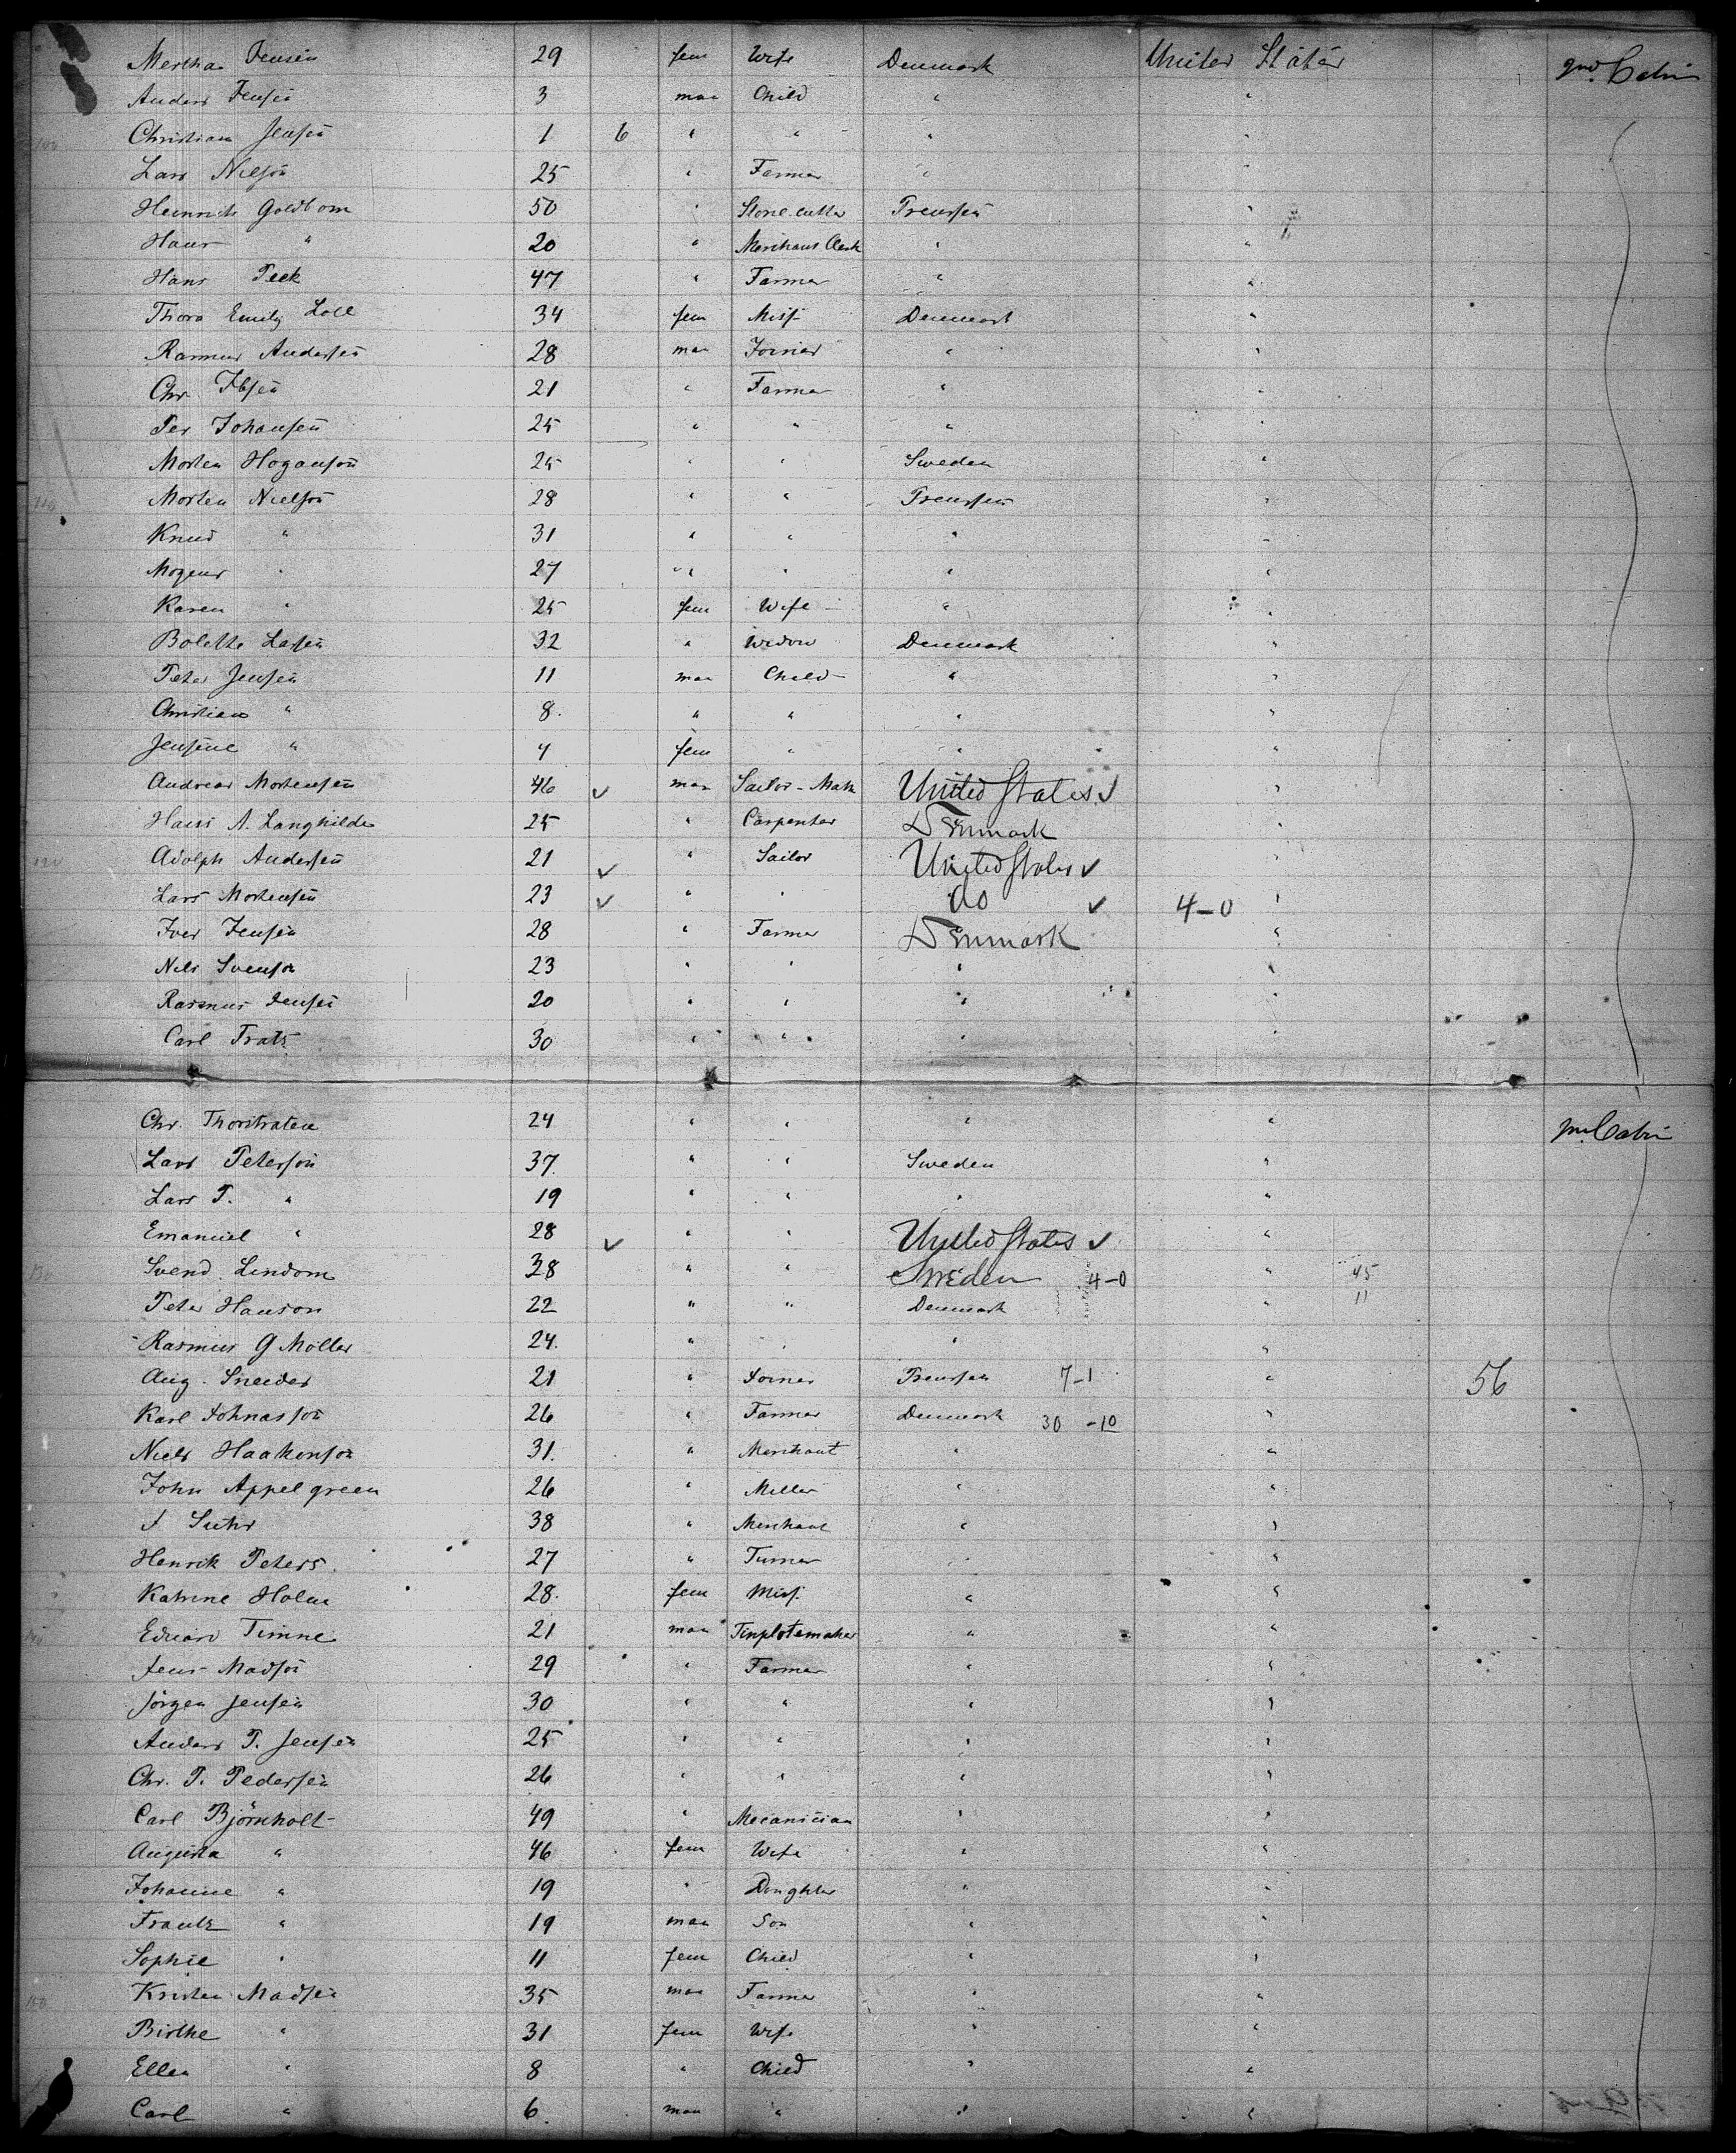 Mertha Jensen 29 fem Wife Denmark United States 2nd Cabin
Anders Jensen 3 man Child " "
Christian Jensen 1 6 " " " "
Lars Nielson 25 " Farmer " "
Heinrich Goldbom 50 " Stone cutter Preussen "
Hans " 20 " Merchant Clerk " "
Hans Peek 47 " Farmer " "
Thora Emily 34 fem Miss Denmark "
Rasmus Andersen 28 man Joiner " "
Chr. Ibsen 21 " Farmer " "
Per Johansen 25 " " " "
Morten Hoganson 25 " " Sweden "
Morten Nielson 28 " " Preussen "
Knud " 31 " " " "
Mogens " 27 " " " "
Karen " 25 fem Wife " "
Bolette Lassen 32 " Widow Denmark "
Peter Jensen 11 man Child " "
Christian " 8. " " " "
Jensine " 4 fem " " "
Andreas Mortensen 46 ✓ man Sailor-Mak United States ✓ "
Hans A. Langhilde 25 " Carpenter Denmark "
Adolph Andersen 21 ✓ " Sailor United States ✓ "
Lars Mortensen 23 ✓ " " do ✓ 4-0 "
Iver Jensen 28 " Farmer Denmark "
Nels Svenson 23 " " " "
Rasmus Jensen 20 " " " "
Carl Frats 30 " " " "
Chr. Thorstraten 24 " " " " 2nd Cabin
Lars Peterson 37. " " Sweden "
Lars P. " 19 " " " "
Emanuel " 28 ✓ " " United States ✓ "
Svend Lindom 38 " " Sweden 4-0 " 45
Peter Hanson 22 " " Denmark " 11
Rasmus G Möller 24. " " " "
Aug. Sneider 21 " Joiner Preussen 7-1 " 56
Karl Johnasson 26 " Farmer Denmark 30 -10 "
Niels Haakonson 31. " Merchant " "
John Appelgreen 26 " Miller " "
J Suhr 38 " Merchant " "
Henrik Peters. 27 " Turner " "
Katrine Holm 28. fem Miss. " "
Eduard Timne 21 man Tinplatemaker " "
Jens Madson 29 " Farmer " "
Jörgen Jensen 30 " " " "
Anders P. Jensen 25 " " " "
Chr. P. Pedersen 26 " " " "
Carl Björnholt 49 " Mecanician " "
Augusta " 46 fem Wife " "
Johanne " 19 " Doughter " "
Frantz " 19 man Son " "
Sophie " 11 fem Child " "
Kristen Madsen 35 man Farmer " "
Birthe " 31 fem Wife " "
Ellen " 8 " Child " "
Carl " 6. man " " "